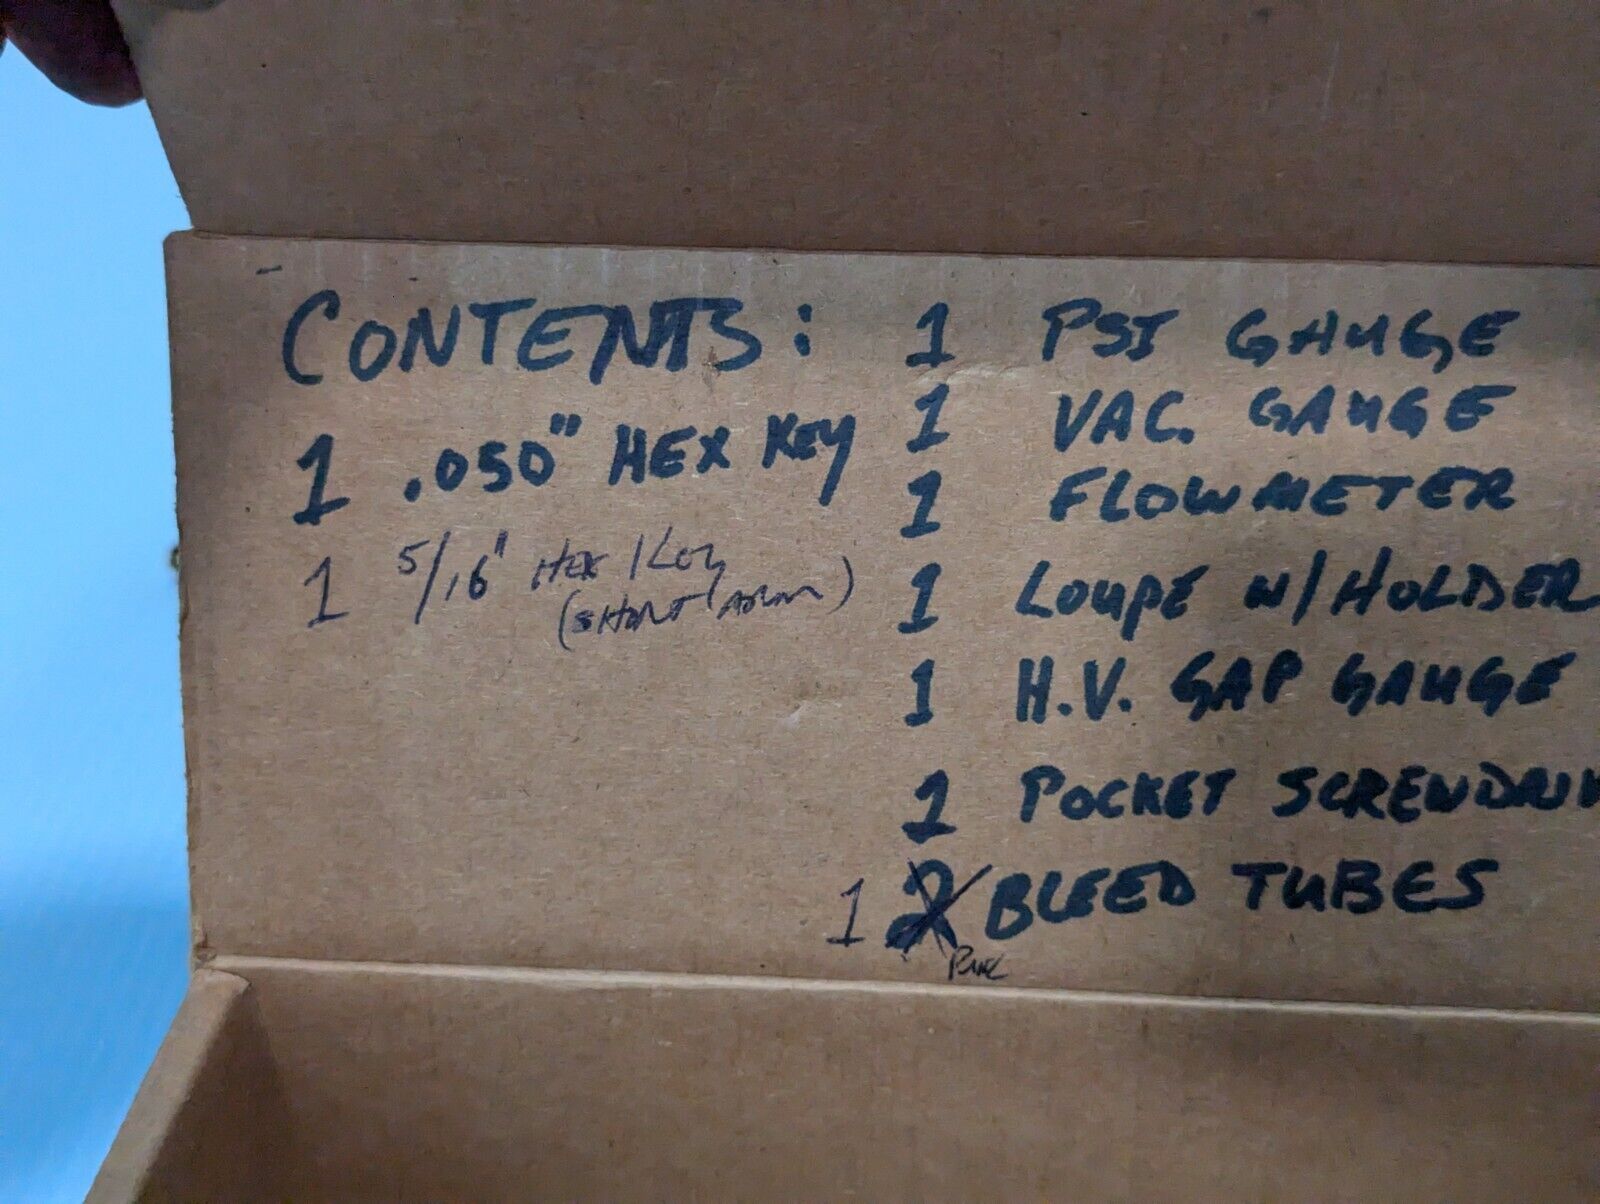 CONTENTS:
1 .050" HEX KEY
1 5/16" HEX KEY
(SHORT ARM)
1 PSI GAUGE
1 VAC. GAUGE
1 FLOWMETER
1 LOUPE W/HOLDER
1 H.V. GAP GAUGE
1 POCKET SCREWDRIV
1 2 BLEED TUBES